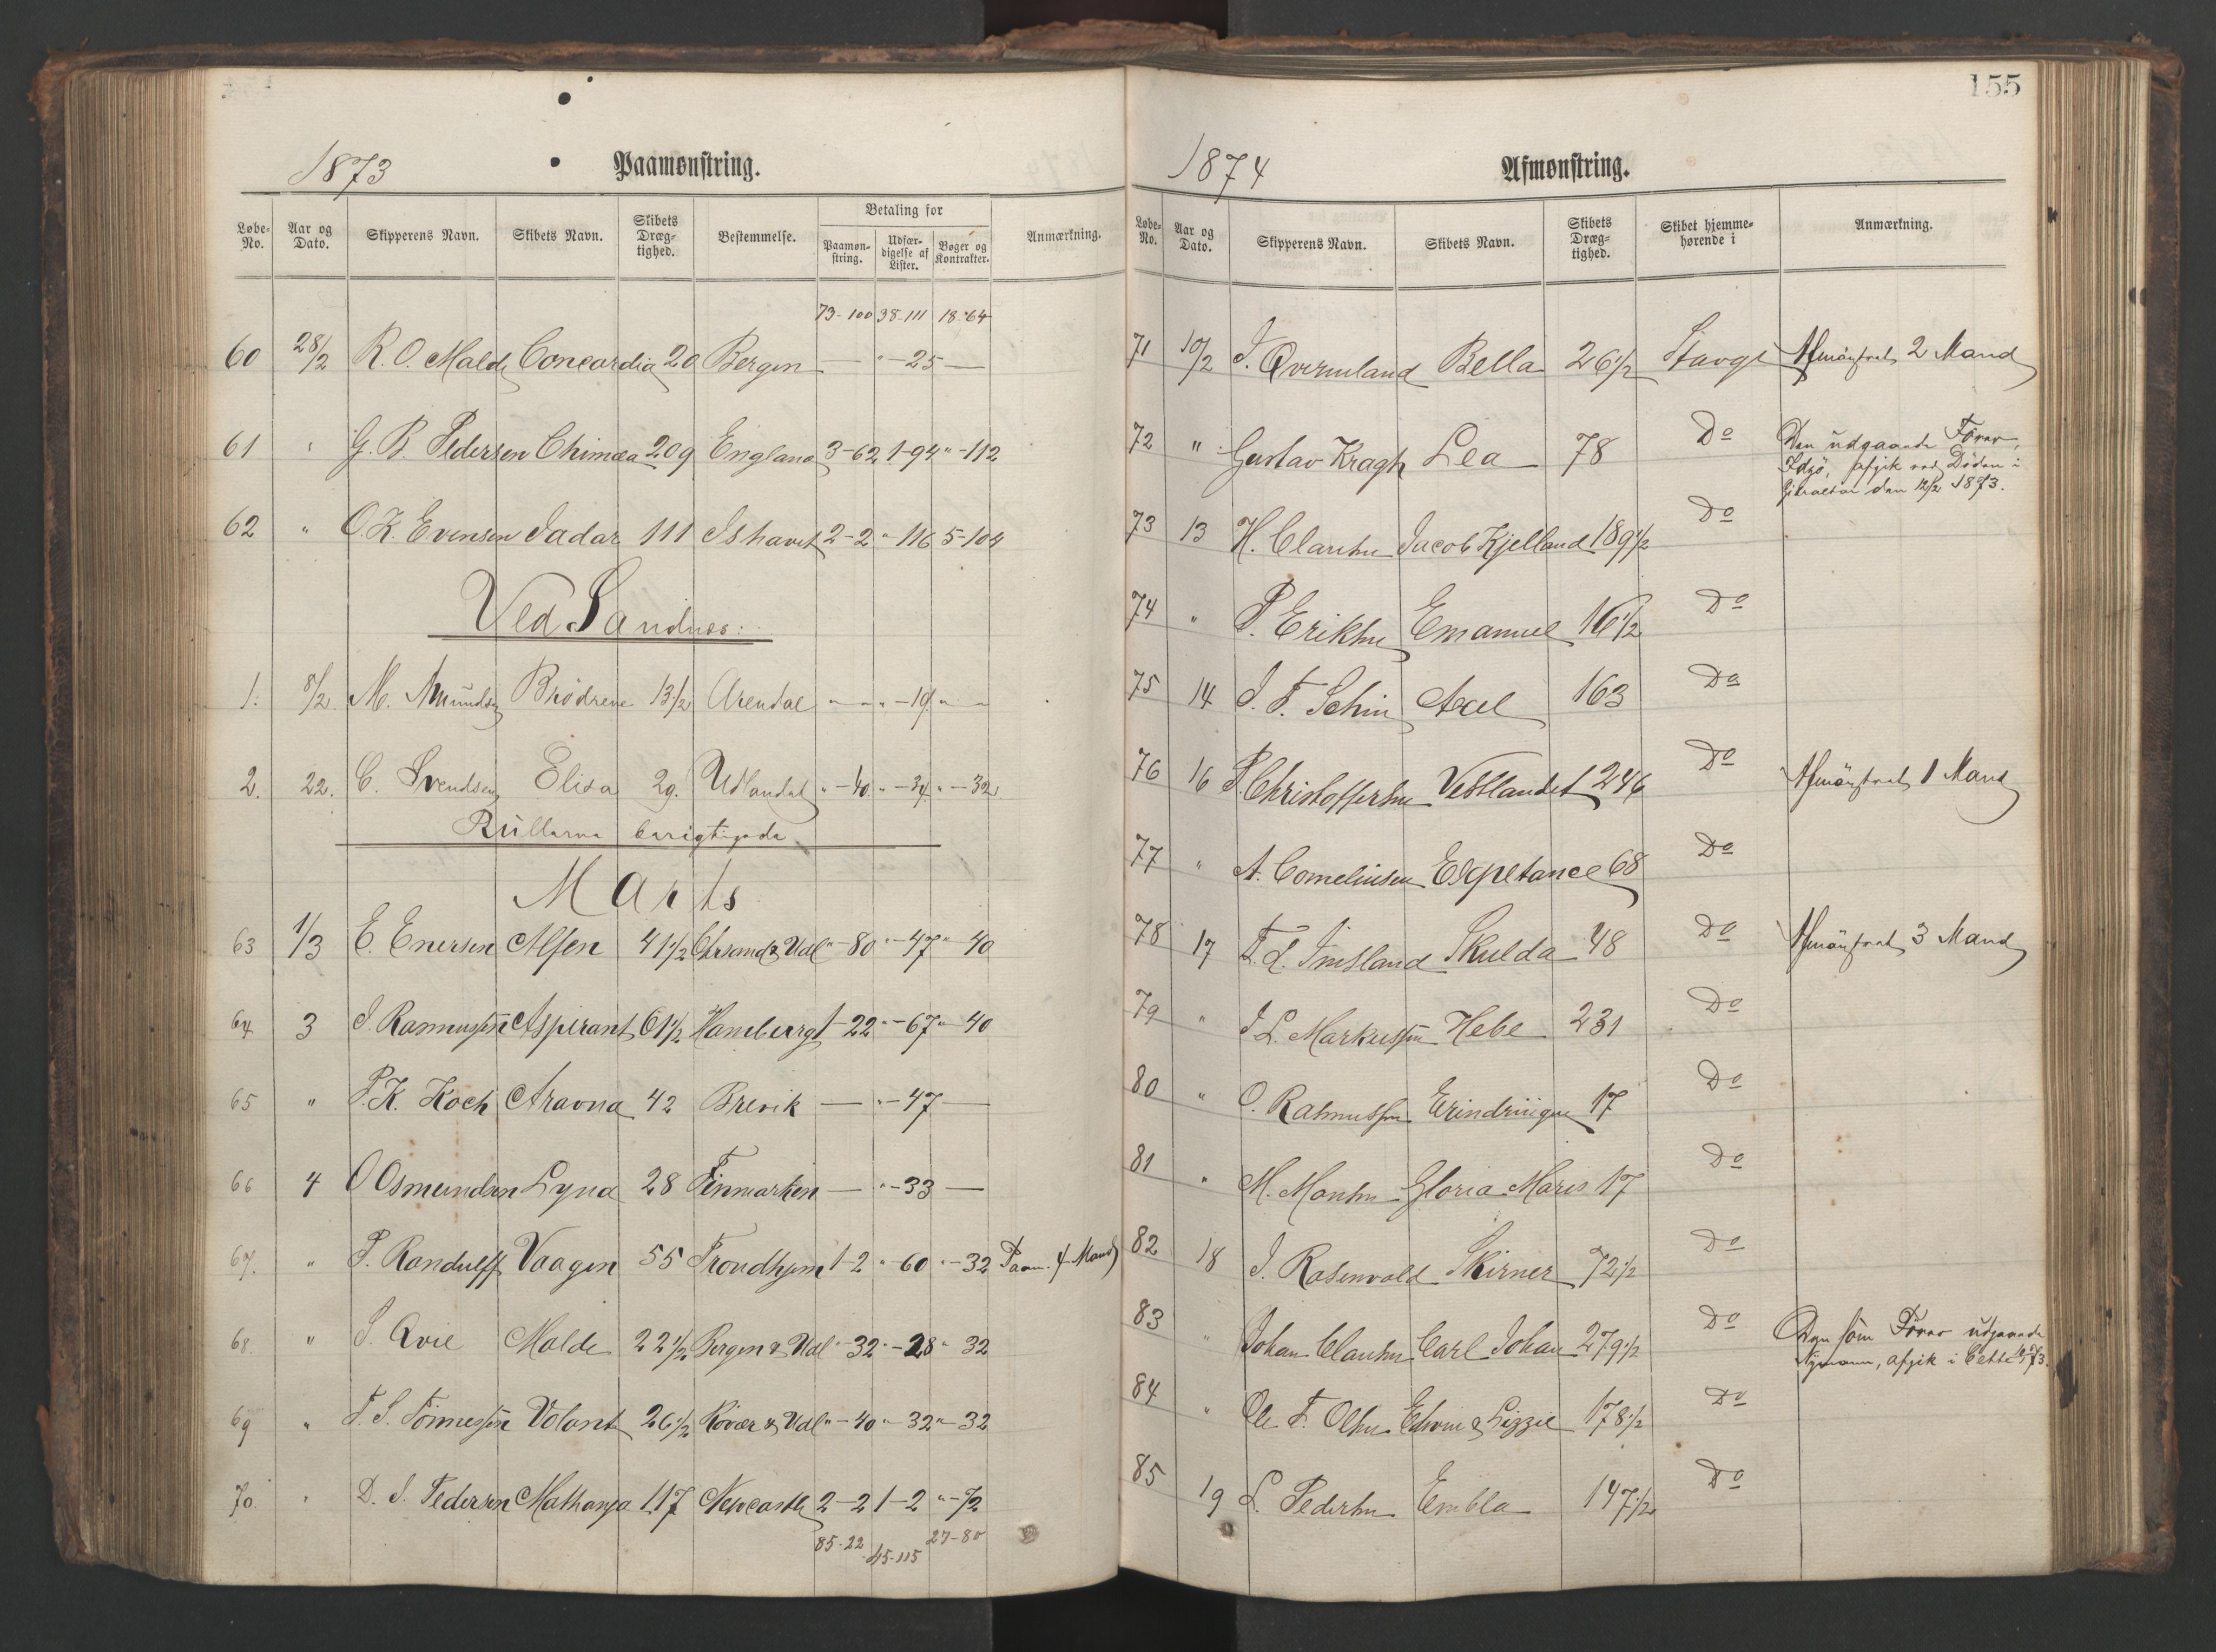 1873 Paamønstring.
Løbe-No. Aar og Dato. Skipperens Navn. Skibets Navn. Skibets Dræg-tighed. Bestemmelse. Betaling for Paamøn-string. Udfær-digelse af Lister. Bøger og Kontrakter. Anmærkning.
73-100 38-111 18-64
60 28/2 R. O. Malde Concordia 20 Bergen — " - 25 —
61 " G. B. Pedersen Chimæa 209 England 3-62 1-94 " - 112
62 " O. K. Evensen Jadar 111 Ishavet 2-2 " - 116 5-104
Ved Sandnes:
1. 8/2 M. Amundsen Brödrene 13 1/2 Arendal " — " - 19 " —
2. 22. C. Svendsen Elisa 29. Udlandet " - 40 " - 34 " - 32
Rullerne berigtigede
Marts
63 1/3 E. Enersen Alfen 41 1/2 Chrsand & Udl " - 80 " - 47 " - 40
64 3 J. Rasmussen Aspirant 61 1/2 Hamburg 1-22 " - 67 " - 40
65 " P. K. Koch Aravna 42 Brevik — " - 47 —
66 4 O Osmundsen Lyna 28 Finmarken — " - 33 —
67. " P. Randulff Vaagen 55 Trondhjem 1-2 " - 60 " - 32 Paam. 4 Mand
68. " J. Qvie Malde 22 1/2 Bergen & Udl " 32 " - 28 " 32
69 " T. S. Tönnessen Volant 26 1/2 Röver & Udl " - 40 " - 32 " - 32
70. " D. S. Pedersen Mathanja 117 Newcastle 2-2 1-2 " - 72
85-22 45-115 27-80
155
1874 Afmønstring.
Løbe-No. Aar og Dato. Skipperens Navn. Skibets Navn. Skibets Dræg-tighed. Skibet hjemme-hørende i Anmærkning.
71 10/2 J. Qvermland Bella 26 1/2 Stavgr Afmönstret 2 Mand
72 " Gustav Kragh Lea 78 Do Den udgaaende Förer,
Idsö, afgik ved Döden i
Gibraltar den 12/2 1873.
73 13 H. Clausen Jacob Kjelland 189 1/2 Do
74 " P. Eriksen Emanuel 16 1/2 Do
75 14 J. F. Schiu Axel 163 Do
76 16 P. Christoffersen Vestlandet 246 Do Afmönstret 1 Mand
77 " A. Corneliusen Expetance 68 Do
78 17 T. L. Imsland Skulda 48 Do Afmönstret 3 Mand
79 " J L. Markussen Hebe 231 Do
80 " O. Rasmussen Erindringen 17 Do
81 " M. Monsen Gloria Maris 17 Do
82 18 J. Rosenvold Skirner 72 1/2 Do
83 " Johan Clausen Carl Johan 279 1/2 Do Den som Förer udgaaende
Nymann, afgik i Cette 73.
84 " Ole T. Olsen Edwin & Lizzie 178 1/2 Do
85 19 L. Pedersen Embla 147 1/2 Do